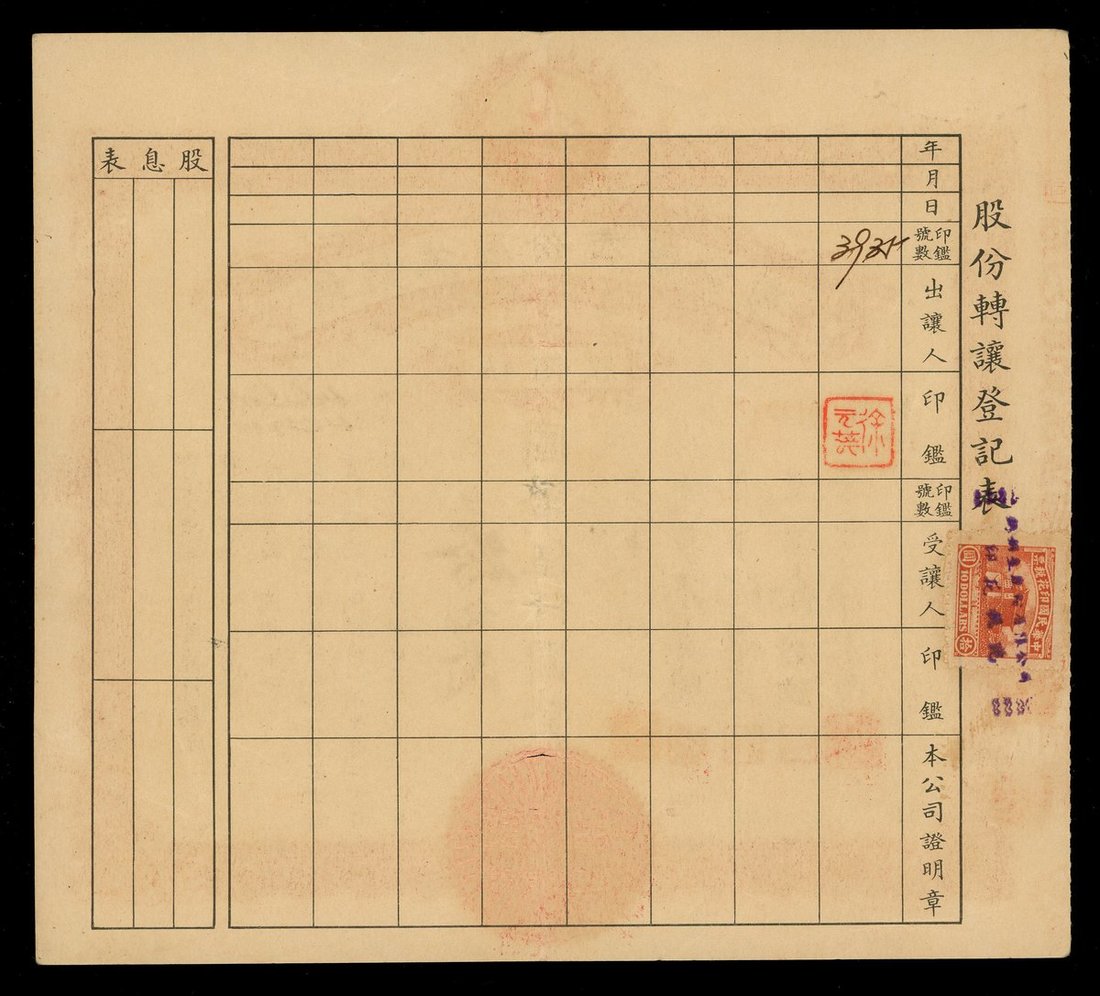 股份轉讓登記表
年
月
日
印鑑號數
出讓人
印鑑
印鑑號數
受讓人
印鑑
本公司證明章
徐
元
中華民國印花稅票
10 DOLLARS
拾
圓
股息表